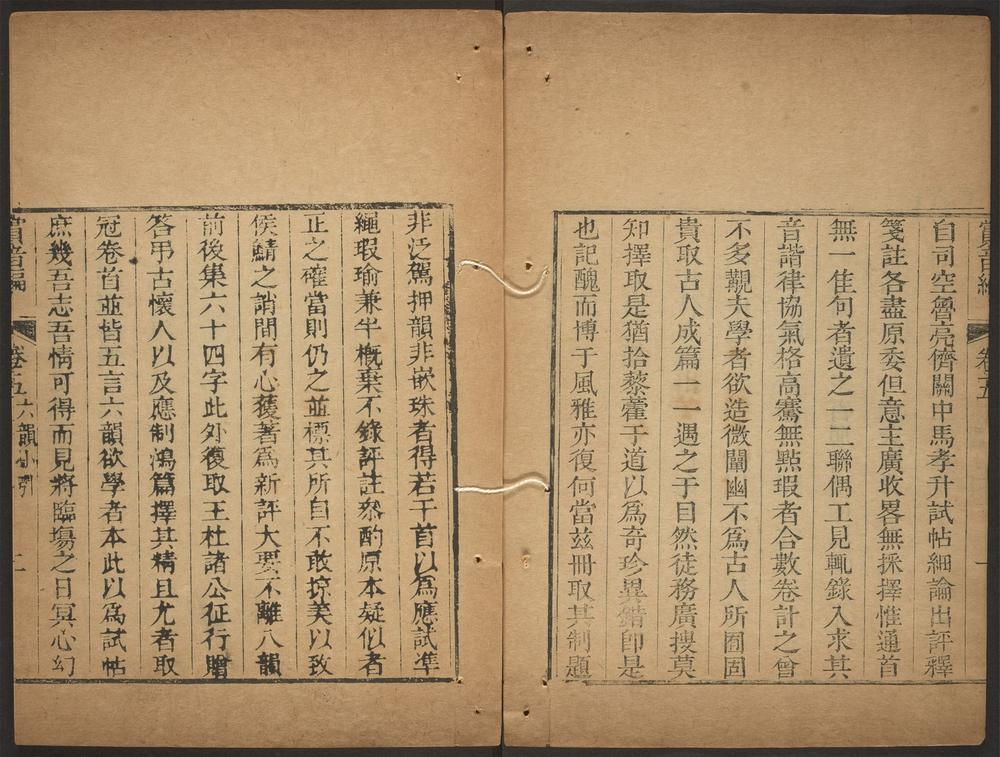 賞音編 卷五 一
自司空魯亮儕關中馬孝升試帖細論出評釋
箋註各盡原委但意主廣收畧無採擇惟通首
無一佳句者遺之一二聯偶工見輒錄入求其
音諧律協氣格高騫無點瑕者合數卷計之曾
不多覯夫學者欲造微闡幽不爲古人所囿固
貴取古人成篇一一遇之于目然徒務廣搜莫
知擇取是猶拾藜藿于道以爲奇珍異錯卽是
也記醜而博于風雅亦復何當茲冊取其制題
非泛駕押韻非嵌珠者得若干首以爲應試凖
繩瑕瑜兼半槪棄不錄評註叅酌原本疑似者
正之確當則仍之並標其所自不敢掠美以致
侯鯖之誚間有心獲著爲新評大要不離八韻
前後集六十四字此外復取王杜諸公征行贈
答弔古懷人以及應制鴻篇擇其精且尤者取
冠卷首並皆五言六韻欲學者本此以爲試帖
庶幾吾志吾情可得而見將臨塲之日冥心幻
賞音編 卷五 六韻小引 二